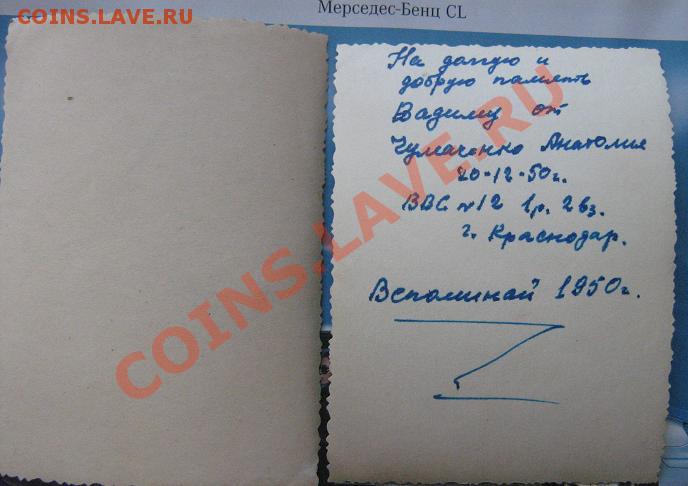 COINS.LAVE.RU
Мерседес-Бенц CL
На долгую и
добрую память
Вадиму от
Чумаченко Анатолия
20-12-50г.
ВВС №12 1р. 2вз.
г. Краснодар.
Вспоминай 1950г.
COINS.LAVE.RU